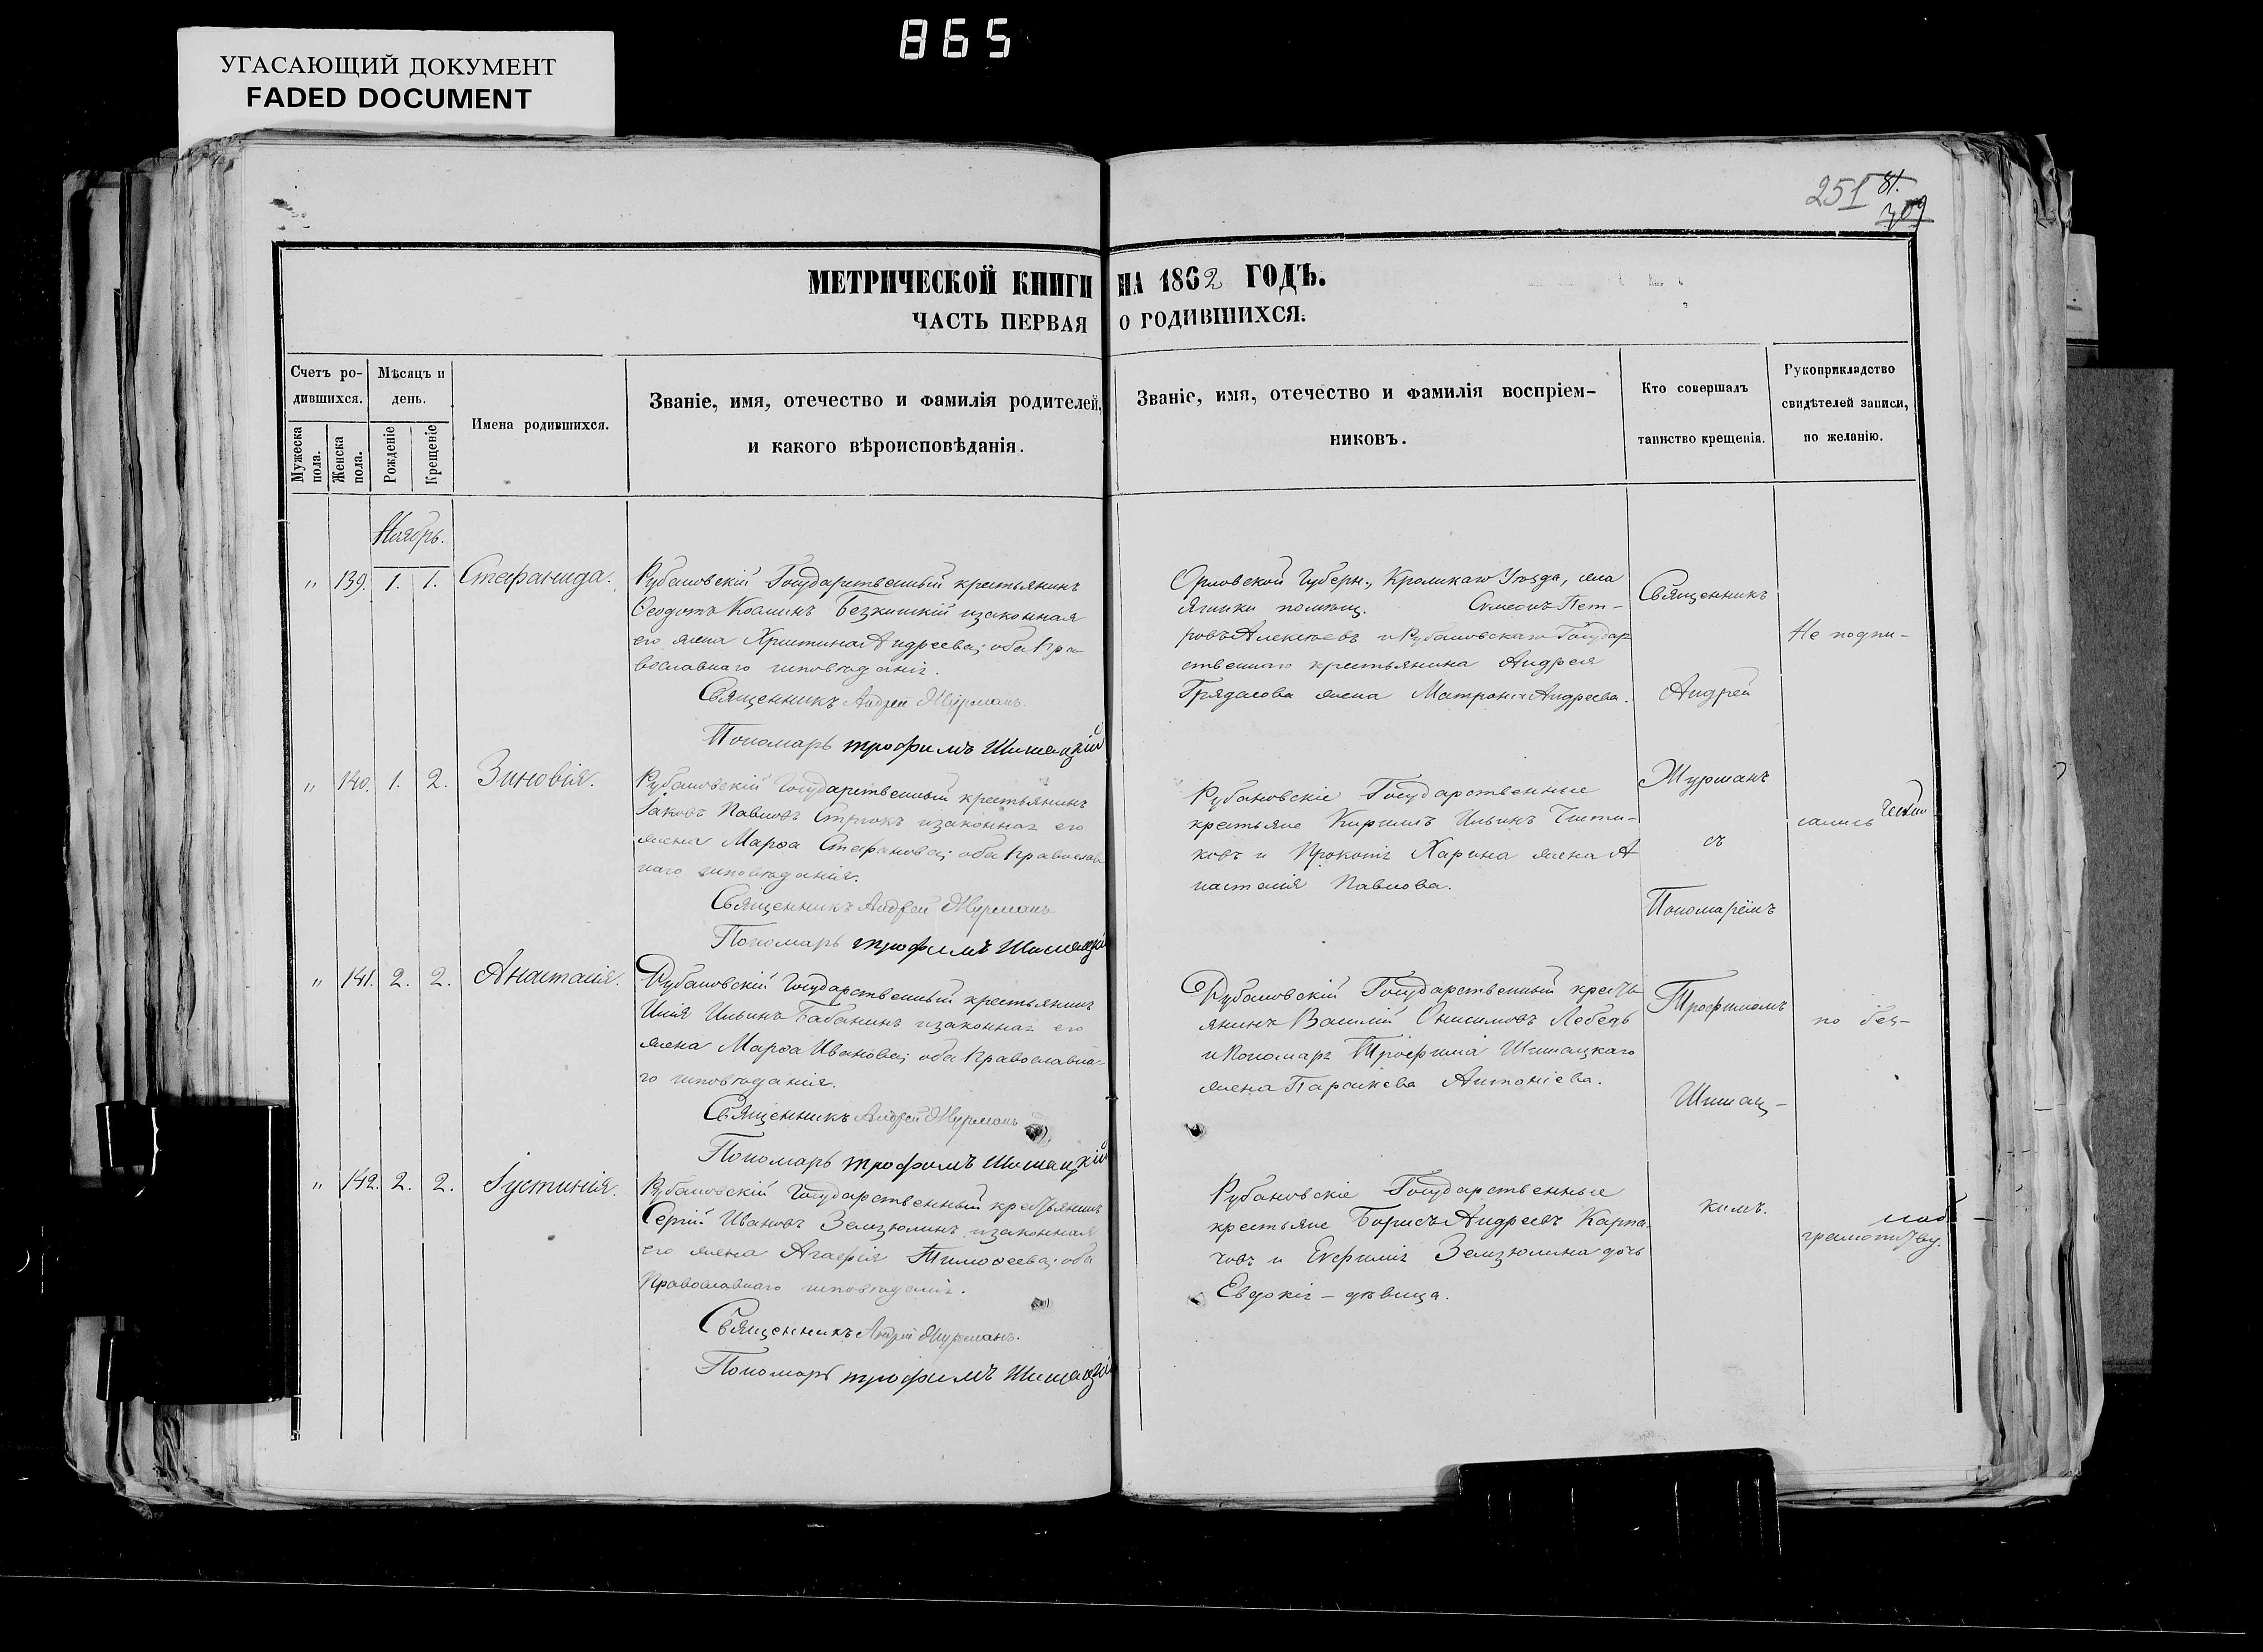 865
УГАСАЮЩИЙ ДОКУМЕНТ
FADED DOCUMENT
251
81.
309
МЕТРИЧЕСКОЙ КНИГИ НА 1862 ГОДЪ.
ЧАСТЬ ПЕРВАЯ О РОДИВШИХСЯ.
Счетъ ро-
дившихся.
Мужеска пола.
Женска пола.
Мѣсяцъ и
день.
Рожденіе
Крещеніе
Имена родившихся.
Званіе, имя, отечество и фамилія родителей,
и какого вѣроисповѣданія.
Званіе, имя, отечество и фамилія воспріем-
никовъ.
Кто совершалъ
таинство крещенія.
Рукоприкладство
свидѣтелей записи,
по желанію.
Ноябрь.
„ 139. 1. 1. Стефанида.
Рубановскій Государственный крестьянинъ
Ѳеодотъ Козминъ изаконная
его жена Христина Андреева; оба Пра-
вославнаго исповѣданія.
Священникъ Андрей Журманъ
Пономарь трофимъ Шишацкій
Орловской Губерн., Уѣзда,
помѣщ. Симеонъ Пет-
ровъ Алексѣевъ и Рубановскаго Государ
ственнаго крестьянина Андрея
Грядасова жена Матрона Андреева.
„ 140. 1. 2. Зиновія.
Рубановскій Государственный крестьянинъ
Іаковъ Павловъ изаконная его
жена Марѳа Стефанова; оба Православ
наго исповѣданія.
Священникъ Андрей Журманъ
Пономарь трофимъ Шишацкій
Рубановскіе Государственные
крестьяне Кирилъ Ильинъ Чисти-
ковъ и Прокопія Харина жена А
настасія Павлова.
„ 141. 2. 2. Анастасія.
Рубановскій Государственный крестьянинъ
Илія Ильинъ Бабанинъ изаконная его
жена Марѳа Иванова; оба Православна-
го исповѣданія.
Священникъ Андрей Журманъ
Пономарь трофимъ Шишацкій
Рубановскій Государственный кресть
янинъ Василій Онисимовъ Лебедь
и Пономаря Трофима Шишацкаго
жена Параскева Антоніева.
„ 142. 2. 2. Іустинія.
Рубановскій Государственный крестьянинъ
Сергій Ивановъ Земзюлинъ изаконная
его жена Агафія Тимоѳеева; оба
Православнаго исповѣданія.
Священникъ Андрей Журманъ.
Пономарь трофимъ Шишацкій
Рубановскіе Государственные
крестьяне Борисъ Андреевъ Карпа-
човъ и Евфимія Земзюлина дочь
Евдокія – дѣвица.
Священникъ
Андрей
Журманъ
съ
Пономарёмъ
Трофимомъ
Шишац-
кимъ.
Не подпи-
сались
по без-
грамотству.